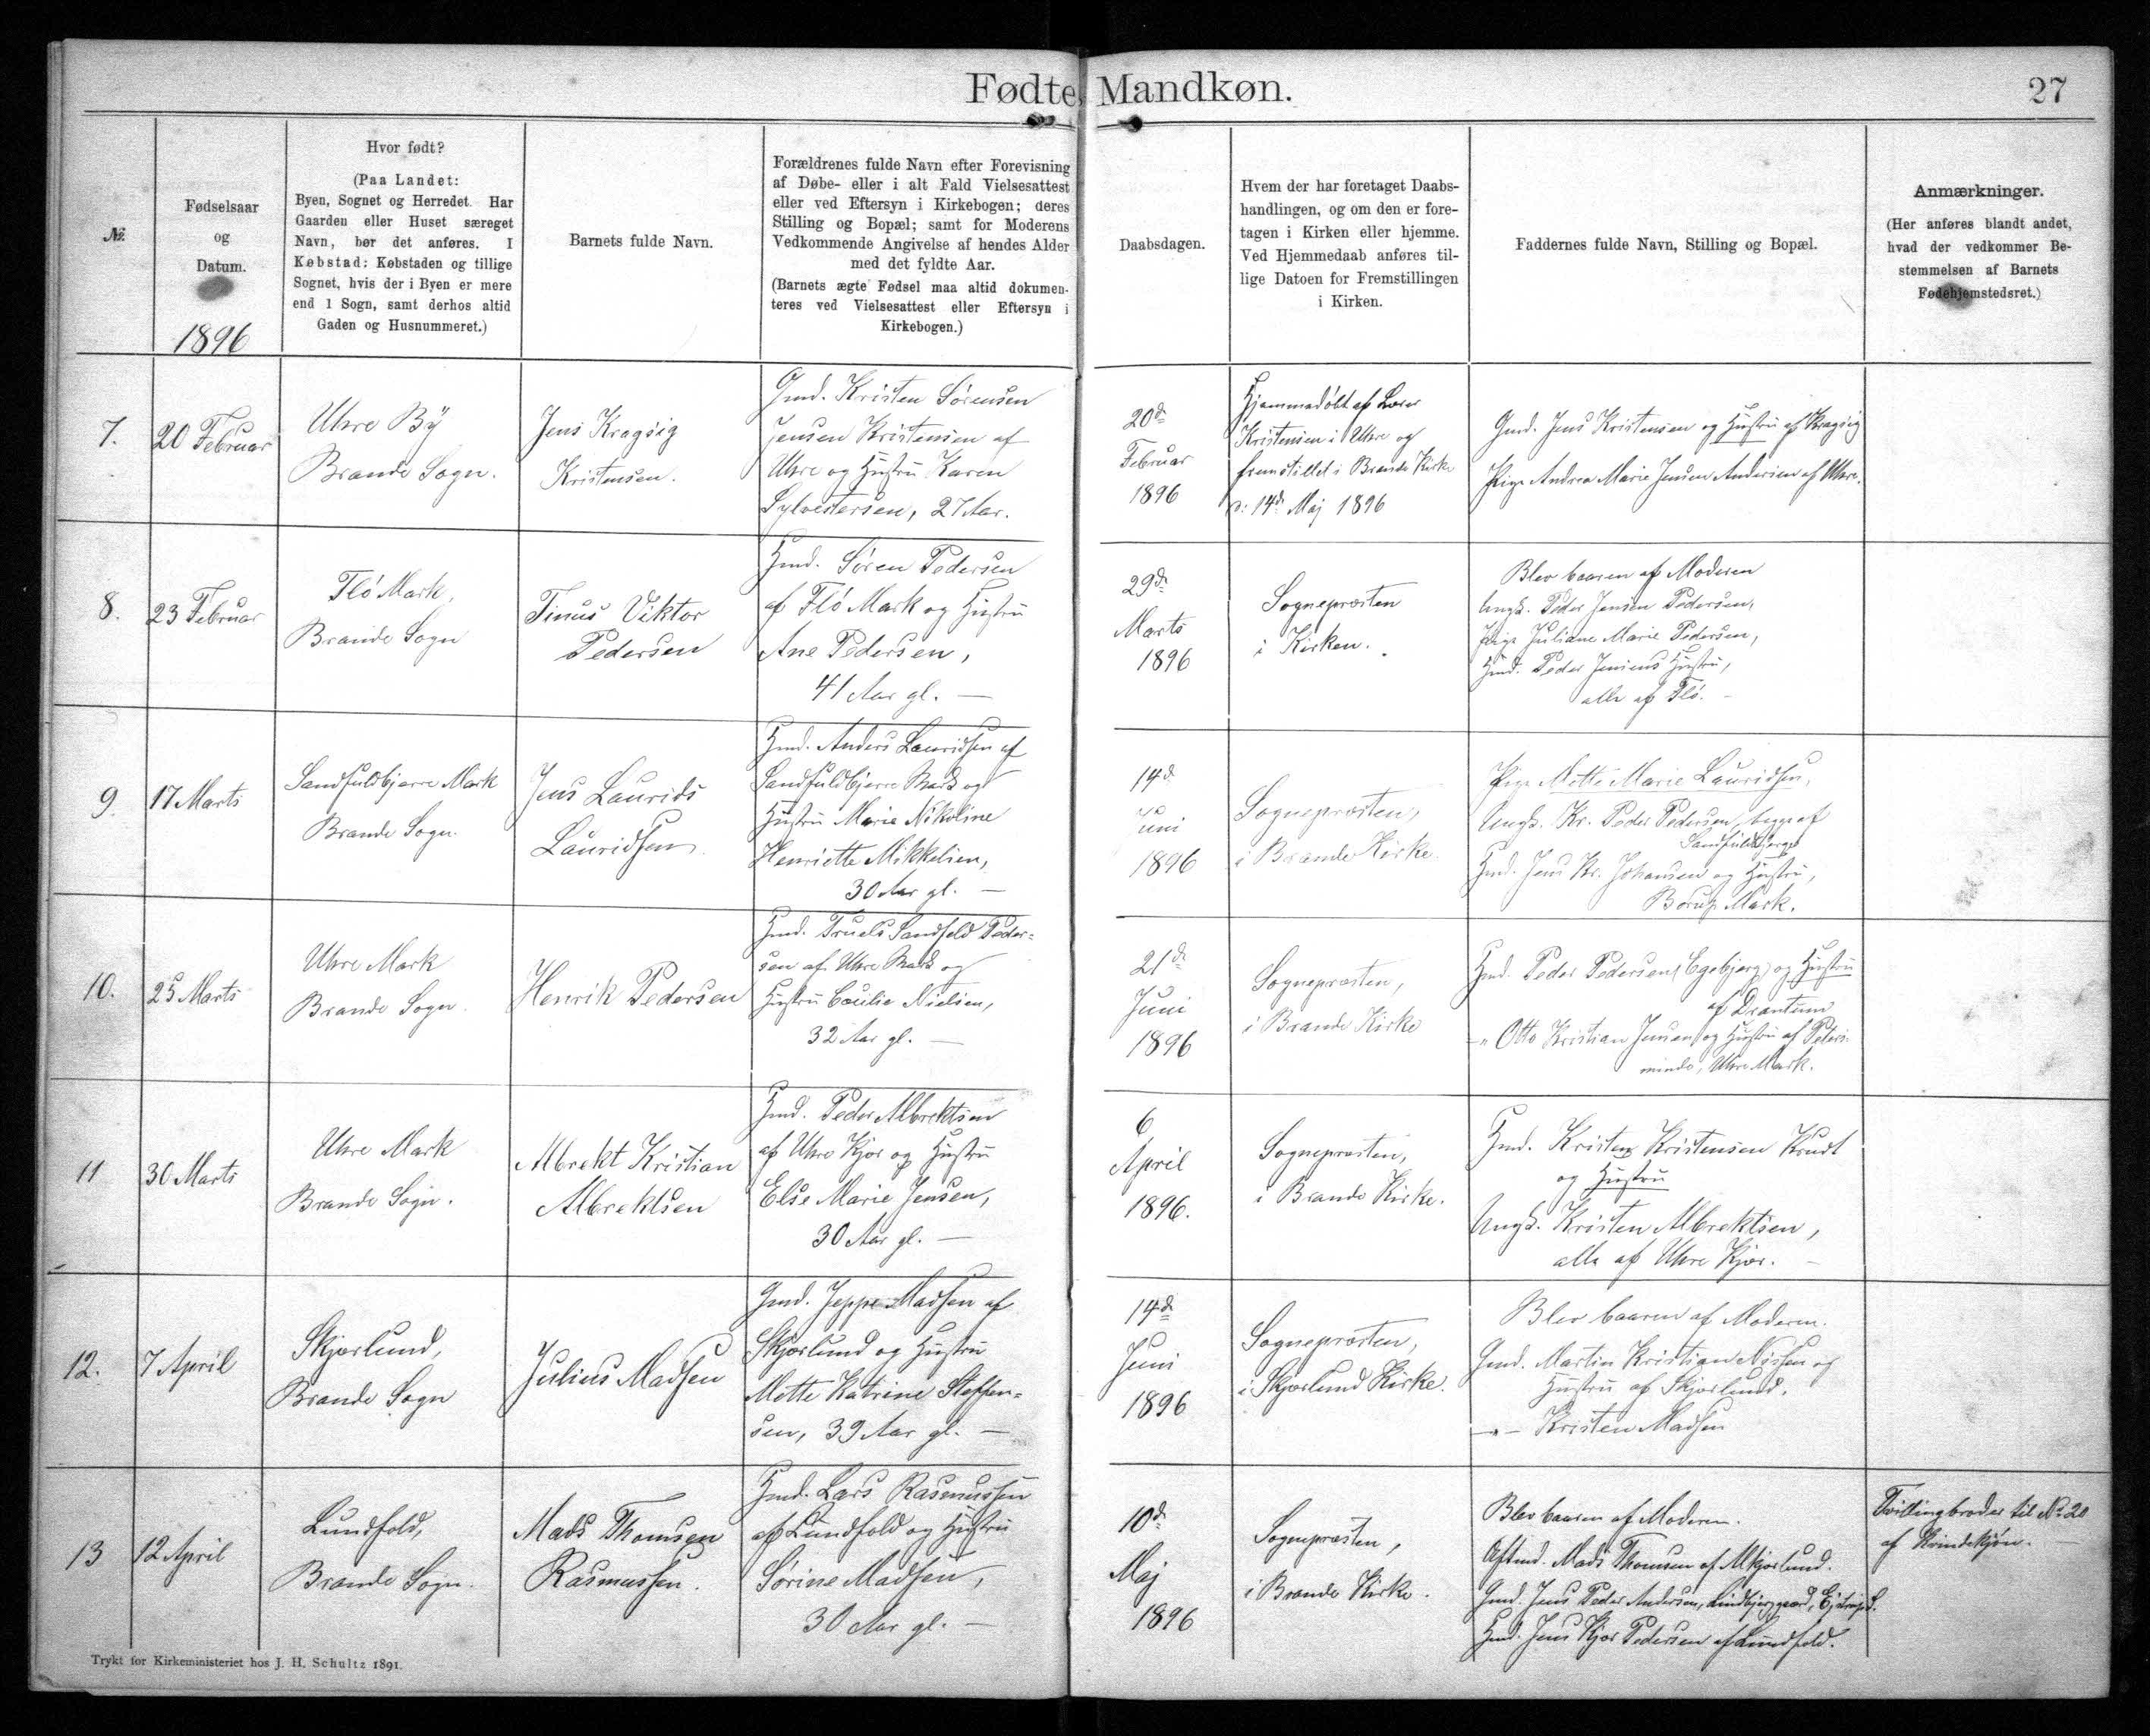 Fødte, Mandkøn.
27
№
Fødselsaar
og
Datum.
1896
Hvor født?
(Paa Landet:
Byen, Sognet og Herredet. Har
Gaarden eller Huset særeget
Navn, bør det anføres. I
Købstad: Købstaden og tillige
Sognet, hvis der i Byen er mere
end 1 Sogn, samt derhos altid
Gaden og Husnummeret.)
Barnets fulde Navn.
Forældrenes fulde Navn efter Forevisning
af Døbe- eller i alt Fald Vielsesattest
eller ved Eftersyn i Kirkebogen; deres
Stilling og Bopæl; samt for Moderens
Vedkommende Angivelse af hendes Alder
med det fyldte Aar.
(Barnets ægte Fødsel maa altid dokumen-
teres ved Vielsesattest eller Eftersyn i
Kirkebogen.)
Daabsdagen.
Hvem der har foretaget Daabs-
handlingen, og om den er fore-
tagen i Kirken eller hjemme.
Ved Hjemmedaab anføres til-
lige Datoen for Fremstillingen
i Kirken.
Faddernes fulde Navn, Stilling og Bopæl.
Anmærkninger.
(Her anføres blandt andet,
hvad der vedkommer Be-
stemmelsen af Barnets
Fødehjemstedsret.)
7.
20 Februar
Uhre By
Brande Sogn.
Jens Kragsig
Kristensen.
Gmd. Kristen Sörensen
Jensen Kristensen af
Uhre og Hustru Karen
Sylvestersen, 27 Aar.
20de
Februar
1896
Hjemmedöbt af Lærer
Kristensen i Uhre og
fremstillet i Brande Kirke
d: 14de Maj 1896
Gmd. Jens Kristensen og Hustru af Kragsig
Pige Andrea Marie Jensen Andersen af Uhre.
8.
23 Februar
Flö Mark,
Brande Sogn
Tinus Viktor
Pedersen
Hmd. Sören Pedersen
af Flö Mark og Hustru
Ane Pedersen,
41 Aar gl. —
29de
Marts
1896
Sognepræsten
i Kirken.
Blev baaren af Moderen
Ungk. Peder Jensen Pedersen,
Pige Juliane Marie Pedersen,
Hmd. Peder Jensens Hustru,
alle af Flö. -
9.
17 Marts
Sandfuldbjerre Mark
Brande Sogn.
Jens Laurids
Lauridsen
Hmd. Anders Lauridsen af
Sandfuldbjerre Mark og
Hustru Marie Nikoline
Henriette Mikkelsen,
30 Aar gl. —
14de
Juni
1896
Sognepræsten,
i Brande Kirke.
Pige Mette Marie Lauridsen,
Ungk. Kr. Peder Pedersen, begge af
Hmd. Jens Kr. Johansen og Hustru,
Borup Mark.
10.
25 Marts
Uhre Mark
Brande Sogn.
Henrik Pedersen
Hmd. Truels Sandfeld Peder-
sen af Uhre Mark og
Hustru Cecilie Nielsen,
32 Aar gl. —
21de
Juni
1896
Sognepræsten,
i Brande Kirke
Hmd. Peder Pedersen (Egebjerg) og Hustru
af Drantum
-"- Otto Kristian Jensen og Hustru af Peters-
minde, Uhre Mark.
11
30 Marts
Uhre Mark
Brande Sogn.
Albrekt Kristian
Albrektsen
Hmd. Peder Albrektsen
af Uhre Kjær og Hustru
Else Marie Jensen,
30 Aar gl. —
6
April
1896.
Sognepræsten,
i Brande Kirke.
Hmd. Kristen Kristensen
og Hustru
Ungk. Kristen Albrektsen,
alle af Uhre Kjær. -
12.
7 April
Skjærlund,
Brande Sogn
Julius Madsen
Gmd. Jeppe Madsen af
Skjærlund og Hustru
Mette Katrine Steffen-
sen, 39 Aar gl. —
14de
Juni
1896
Sognepræsten,
i Skjærlund Kirke.
Blev baaren af Moderen.
Gmd. Martin Kristian Nissen og
Hustru af Skjærlund.
-"- Kristen Madsen
13
12 April
Lundfold,
Brande Sogn.
Mads Thomsen
Rasmussen.
Hmd. Lars Rasmussen
af Lundfold og Hustru
Sörine Madsen,
30 Aar gl. —
10de
Maj
1896
Sognepræsten,
i Brande Kirke.
Blev baaren af Moderen.
Aftmd. Mads Thomsen af
Gmd. Jens Peder Andersen, Lindbjerggaard, Ejstrup S.
Hmd. Jens Kjær Pedersen af Lundfold.
Tvillingbroder til No 20
af Kvindekjön. —
Trykt for Kirkeministeriet hos J. H. Schultz 1891.